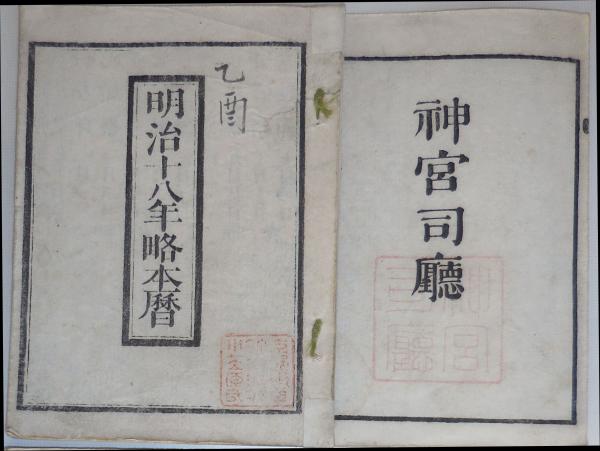 神宮司廳
乙酉
明治十八年略本暦